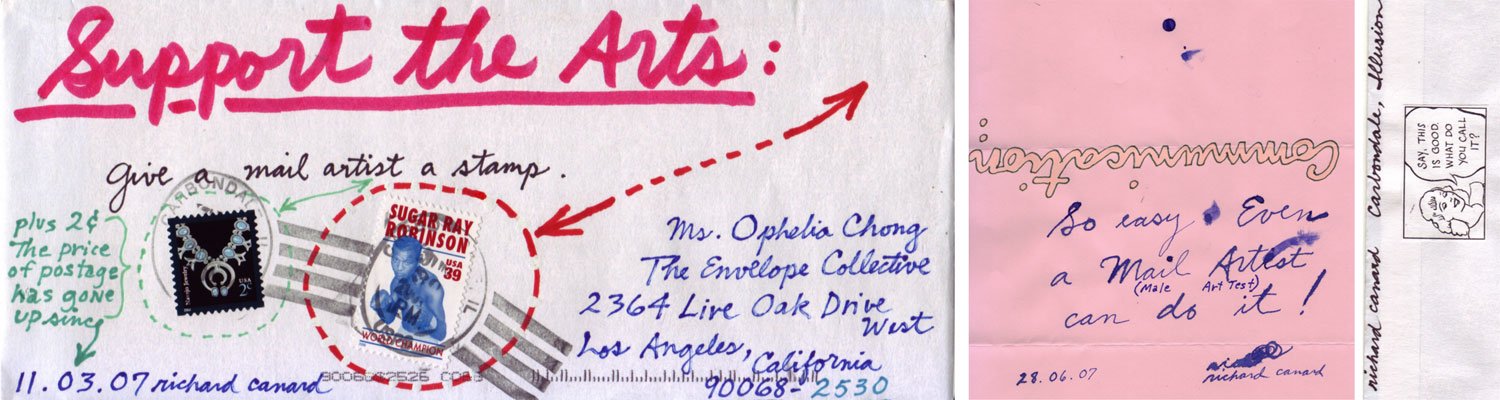 Support the Arts:
Give a mail artist a stamp.
plus 2¢
The price
of postage
has gone
up since
11.03.07 richard canard
CARBONDA
Navajo Jewelry
USA
2¢
SUGAR RAY
ROBINSON
USA
39
WORLD CHAMPION
IL
Ms. Ophelia Chong
The Envelope Collective
2364 Live Oak Drive
West
Los Angeles,
California
90068-2530
Communication...
So easy Even
a Mail Artist
(Male Art Test)
can do it!
28.06.07
richard canard
richard canard Carbondale, Illusion
SAY, THIS
IS GOOD.
WHAT DO
YOU CALL
IT?